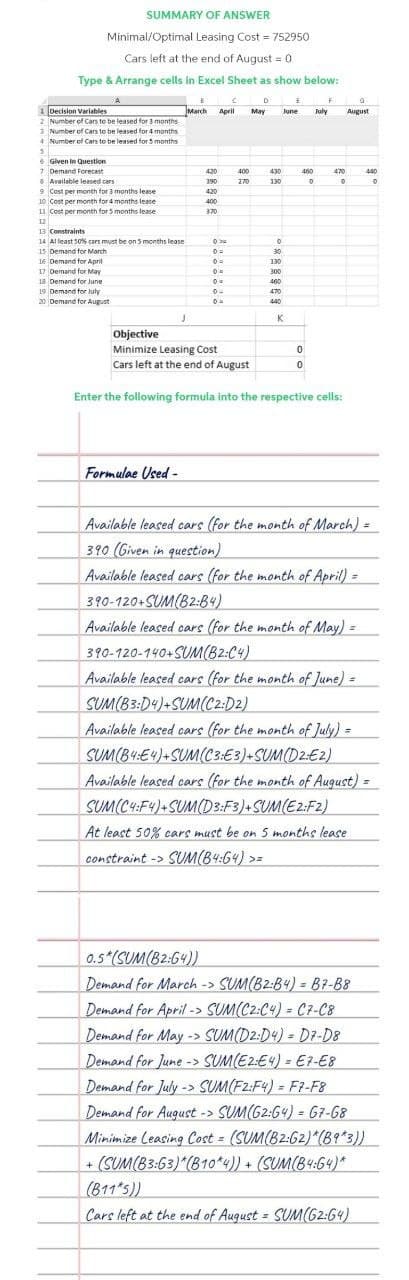 SUMMARY OF ANSWER
Minimal/Optimal Leasing Cost = 752950
Cars left at the end of August = 0
Type & Arrange cells in Excel Sheet as show below:
A B C D E F G
1 Decision Variables March April May June July August
2 Number of Cars to be leased for 3 months
3 Number of Cars to be leased for 4 months
4 Number of Cars to be leased for 5 months
5
6 Given In Question
7 Demand Forecast 420 400 430 460 470 440
8 Available leased cars 390 270 130 0 0 0
9 Cost per month for 3 months lease 420
10 Cost per month for 4 months lease 400
11 Cost per month for 5 months lease 370
12
13 Constraints
14 Al least 50% cars must be on 5 months lease 0 >= 0
15 Demand for March 0 = 30
16 Demand for April 0 = 130
17 Demand for May 0 = 300
18 Demand for June 0 = 460
19 Demand for July 0 = 470
20 Demand for August 0 = 440
J K
Objective
Minimize Leasing Cost 0
Cars left at the end of August 0
Enter the following formula into the respective cells:
Formulae Used -
Available leased cars (for the month of March) =
390 (Given in question)
Available leased cars (for the month of April) =
390-120+SUM(B2:B4)
Available leased cars (for the month of May) =
390-120-140+SUM(B2:C4)
Available leased cars (for the month of June) =
SUM(B3:D4)+SUM(C2:D2)
Available leased cars (for the month of July) =
SUM(B4:E4)+SUM(C3:E3)+SUM(D2:E2)
Available leased cars (for the month of August) =
SUM(C4:F4)+SUM(D3:F3)+SUM(E2:F2)
At least 50% cars must be on 5 months lease
constraint -> SUM(B4:G4) >=
0.5*(SUM(B2:G4))
Demand for March -> SUM(B2:B4) = B7-B8
Demand for April -> SUM(C2:C4) = C7-C8
Demand for May -> SUM(D2:D4) = D7-D8
Demand for June -> SUM(E2:E4) = E7-E8
Demand for July -> SUM(F2:F4) = F7-F8
Demand for August -> SUM(G2:G4) = G7-G8
Minimize Leasing Cost = (SUM(B2:G2)*(B9*3))
+ (SUM(B3:G3)*(B10*4)) + (SUM(B4:G4)*
(B11*5))
Cars left at the end of August = SUM(G2:G4)